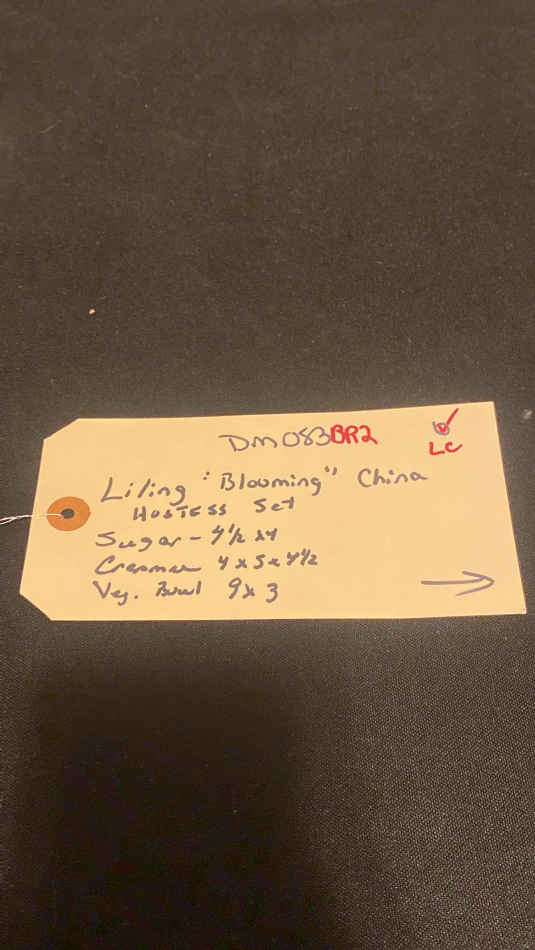 DM083BR2
LC
Liling "Blooming" China
Hostess Set
Sugar - 4½ x 4
Creamer 4 x 5 x 4½
Veg. Bowl 9 x 3